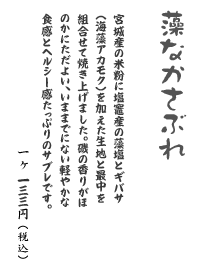 藻なかさぶれ
宮城産の米粉に塩竈産の藻塩とギバサ
(海藻アカモク)を加えた生地と最中を
組合せて焼き上げました。磯の香りがほ
のかにただよい、いままでにない軽やかな
食感とヘルシー感たっぷりのサブレです。
一ヶ 一三三円(税込)